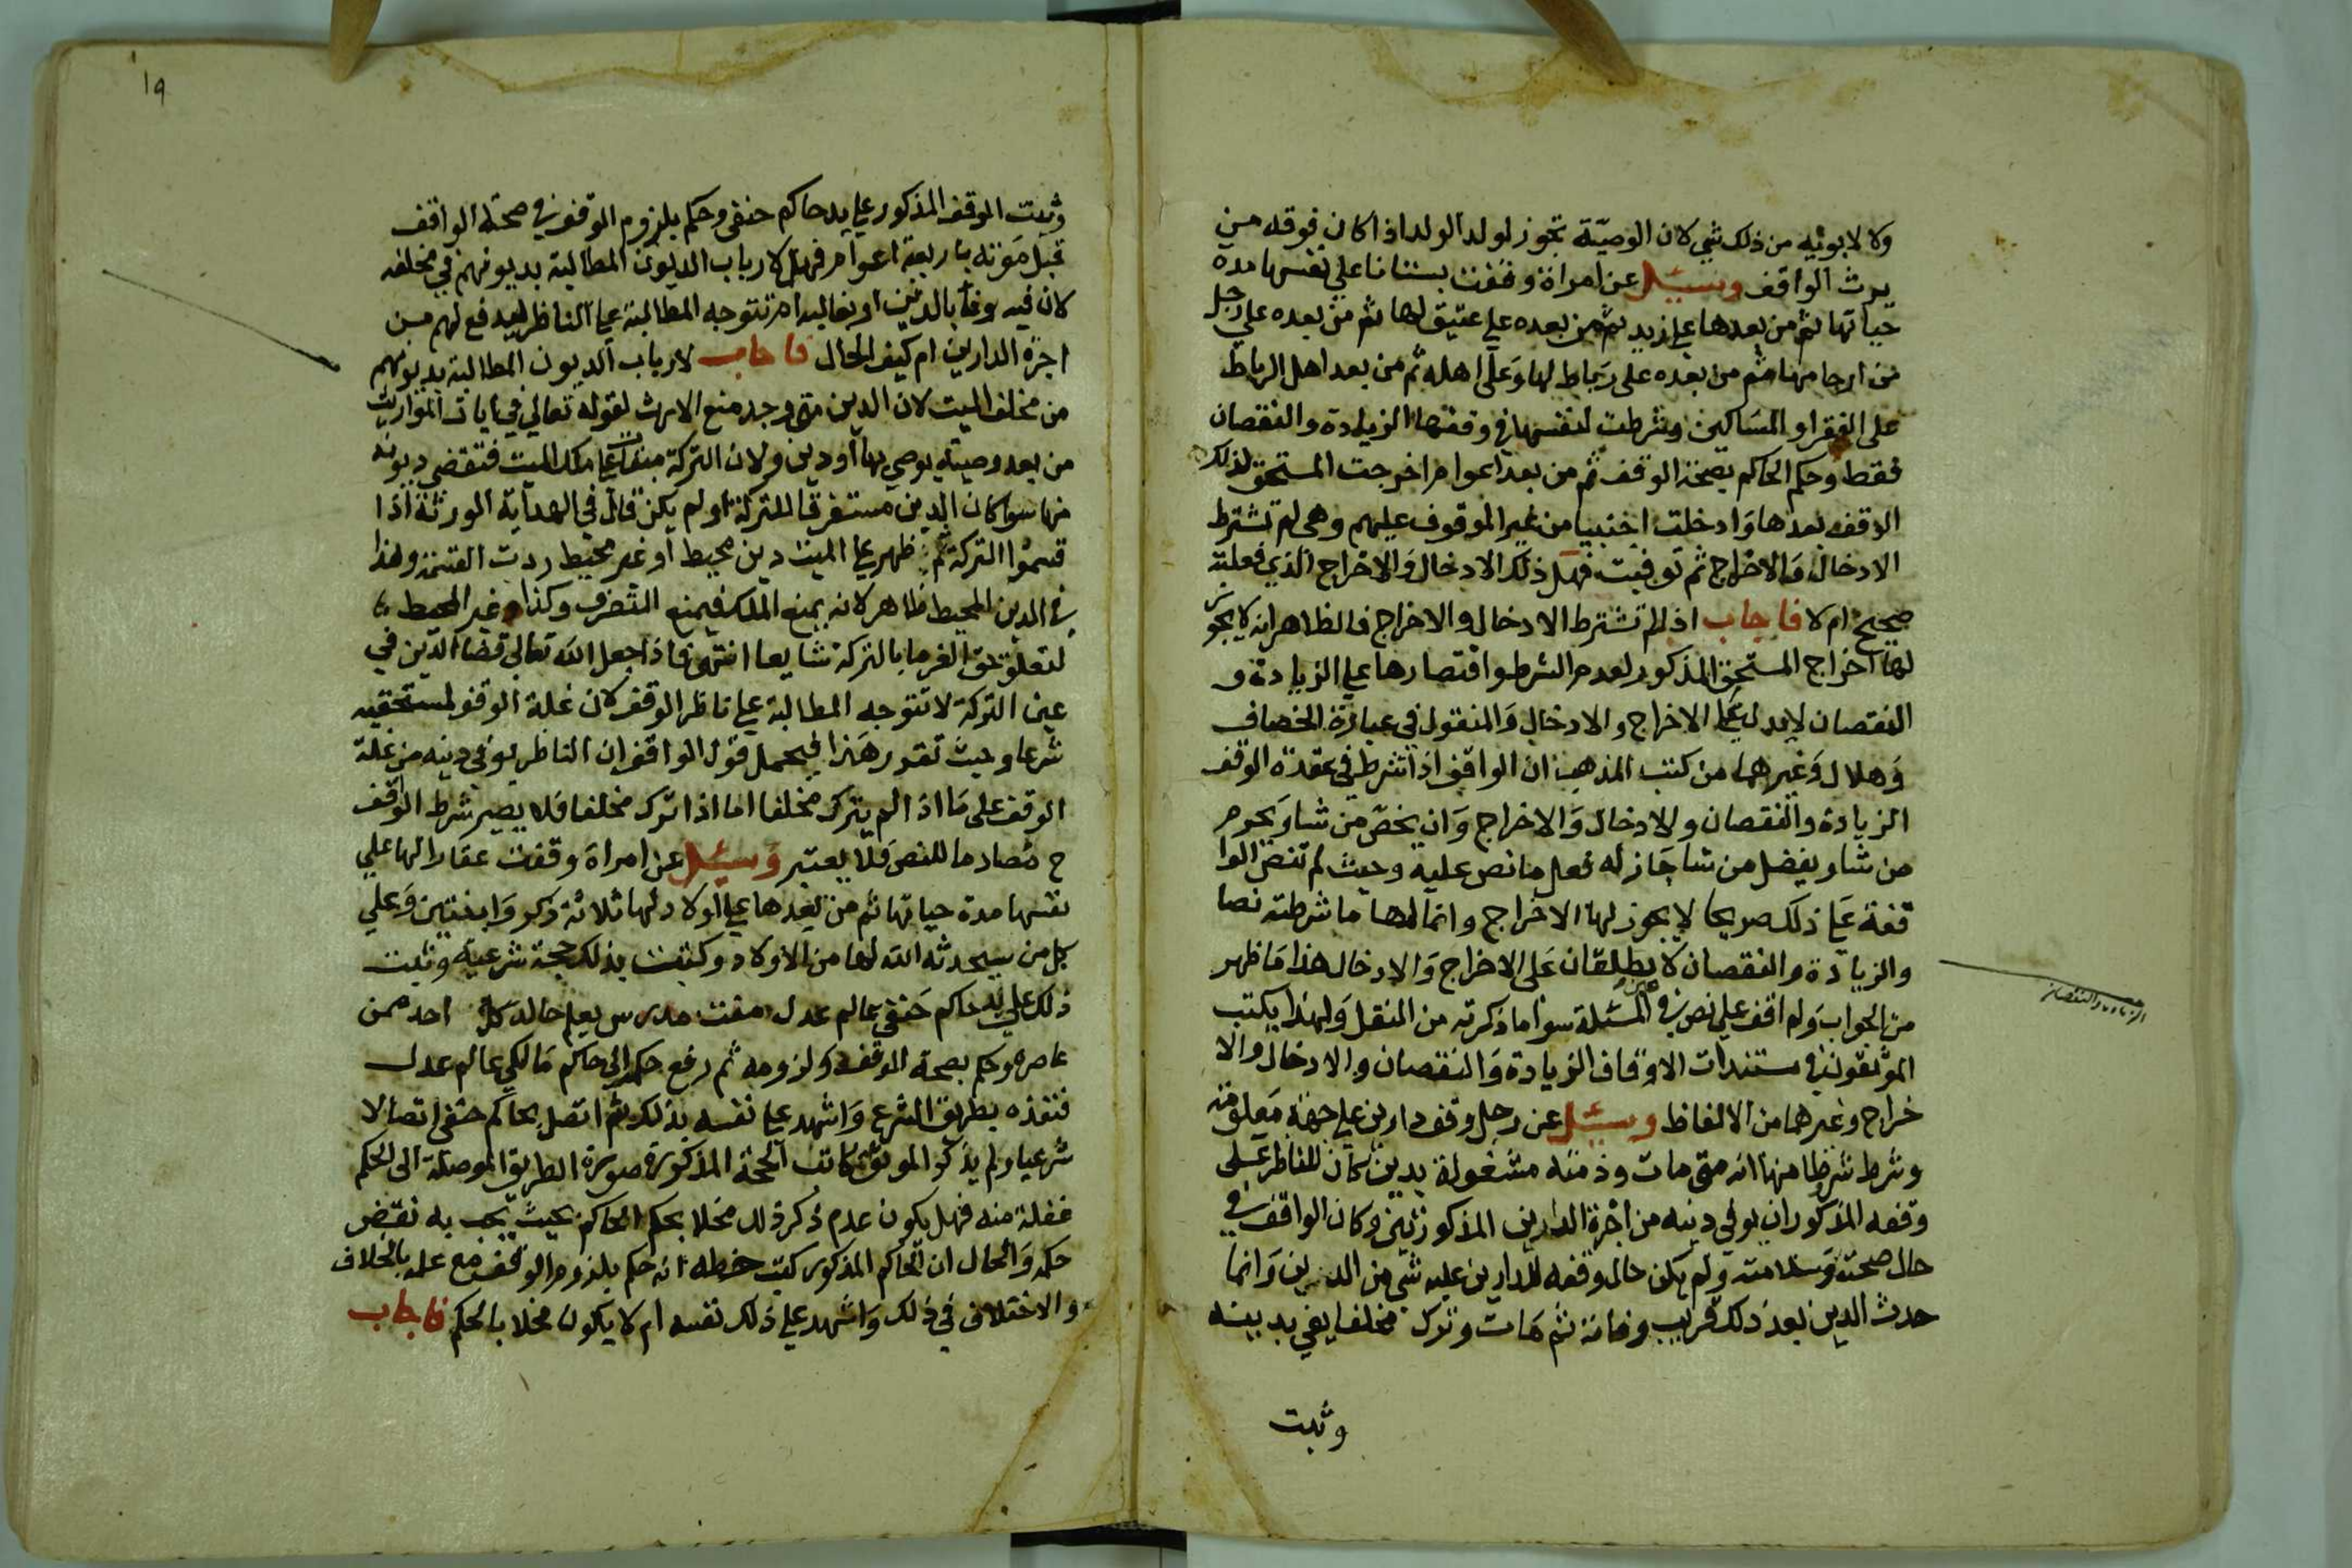 ولا لابويه من ذلك شي لان الوصيّة تجوز لولد الولد اذا كان فوقه من
يرث الواقف وسيل عن امراة وقفت بستانا علي نفسها مدة
حياتها ثم من بعدها علي زيد ثم من بعده علي عتيق لها ثم من بعده علي رجل
من ارحامها ثم من بعده على رباط لها وعلى اهله ثم من بعد اهل الرباط
على الفقرا والمساكين وشرطت لنفسها في وقفها الزيادة والنقصان
فقط وحكم الحاكم بصحة الوقف ثم من بعد اعوام اخرجت المستحق لذلك
الوقف بعدها وادخلت اجنبيا من غير الموقوف عليهم وهي لم تشترط
الادخال والاخراج ثم توفيت فهل ذلك الادخال والاخراج الذي فعلته
صحيح ام لا فاجاب اذا لم تشترط الادخال والاخراج فالظاهر انه لا يجوز
لها اخراج المستحق المذكور لعدم الشرط واقتصارها علي الزيادة و
النقصان لا يدل علي الاخراج والادخال والمنقول في عبارة الخصاف
وهلال وغيرهما من كتب المذهب ان الواقف اذا شرط في عقدة الوقف
الزيادة والنقصان والادخال والاخراج وان يخص من شا ويحرم
من شا ويفضل من شا جاز له فعل ما نص عليه وحيث لم تنص الوا
قفة علي ذلك صريحا لا يجوز لها الاخراج وانما لها ما شرطته نصا
والزيادة والنقصان لا يطلقان على الاخراج والادخال هذا ما ظهر
من الجواب ولم اقف علي نص في عين المسئلة سوا ما ذكرته من النقل ولهذا يكتب
الموثقون في مستندات الاوقاف الزيادة والنقصان والادخال والا
خراج وغيرهما من الالفاظ وسئل عن رجل وقف دارين علي جهة معلومة
وشرط شروطا منها انه متى مات وذمته مشغولة بدين كان للناظر على
وقفه المذكور ان يوفي دينه من اجرة الدارين المذكورتين وكان الواقف في
حال صحته وسلامته ولم يكن حال وقفه للدارين عليه شي من الدين وانما
حدث الدين بعد ذلك قريب وفاته ثم مات وترك مخلفا يفي بدينه
وثبت
الزيادة والنقصان
١٩
وثبت الوقف المذكور علي يد حاكم حنفي وحكم بلزوم الوقف في صحة الواقف
قبل موته باربعة اعوام فهل لارباب الديون المطالبة بديونهم في مخلفه
لان فيه وفا بالدين او بغالبه ام تتوجه المطالبة علي الناظر ليدفع لهم من
اجرة الدارين ام كيف الحال فاجاب لارباب الديون المطالبة بديونهم
من مخلف الميت لان الدين متى وجد منع الارث لقوله تعالي في ايات المواريث
من بعد وصية يوصي بها او دين ولان التركة مبقات علي ملك الميت فتقضي ديونه
منها سوا كان الدين مستغرقا للتركة او لم يكن قال في الهداية الورثة اذا
قسموا التركة ثم ظهر علي الميت دين محيط او غير محيط ردت القسمة وهذا
في الدين المحيط ظاهر لانه يمنع الملك فيمنع التصرف وكذا غير المحيط
لتعلق حق الغرما بالتركة شايعا انتهى فاذا جعل الله تعالى قضا الدين في
عين التركة لا تتوجه المطالبة علي ناظر الوقف لان غلة الوقف لمستحقيه
شرعا وحيث تقرر هذا فيحمل قول الواقف ان الناظر يوفي دينه من غلة
الوقف على ما اذا لم يترك مخلفا اما اذا ترك مخلفا فلا يصير شرط الواقف
ح مصادما للنص فلا يعتبر وسئل عن امراة وقفت عقارا لها علي
نفسها مدة حياتها ثم من بعدها علي اولاد لها ثلاثة ذكر وابنتين وعلي
كل من سيحدثه الله لها من الاولاد وكتبت بذلك حجة شرعية وثبت
ذلك علي يد حاكم حنفي عالم عدل مفت مدرس يعلم حاله كل احد ممن
عاصره وحكم بصحة الوقف ولزومه ثم رفع حكمه الى حاكم مالكي عالم عدل
فنفذه بطريق الشرع واشهد علي نفسه بذلك ثم اتصل بحاكم حنفي اتصالا
شرعيا ولم يذكر الموثق كاتب الحجة المذكورة صورة الطريق الموصلة الى الحكم
غفلة منه فهل يكون عدم ذكر ذلك مخلا بحكم الحاكم بحيث يجب به نقض
حكمه والحال ان الحاكم المذكور كتب خطه انه حكم بلزوم الوقف مع علمه بالخلاف
والاختلاف في ذلك واشهد علي ذلك نفسه ام لا يكون مخلا بالحكم فاجاب